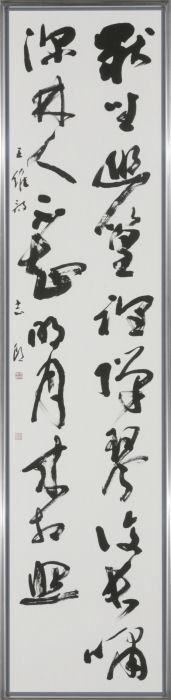 獨坐幽篁裡彈琴復長嘯
深林人不知明月来相照
王維詩
志